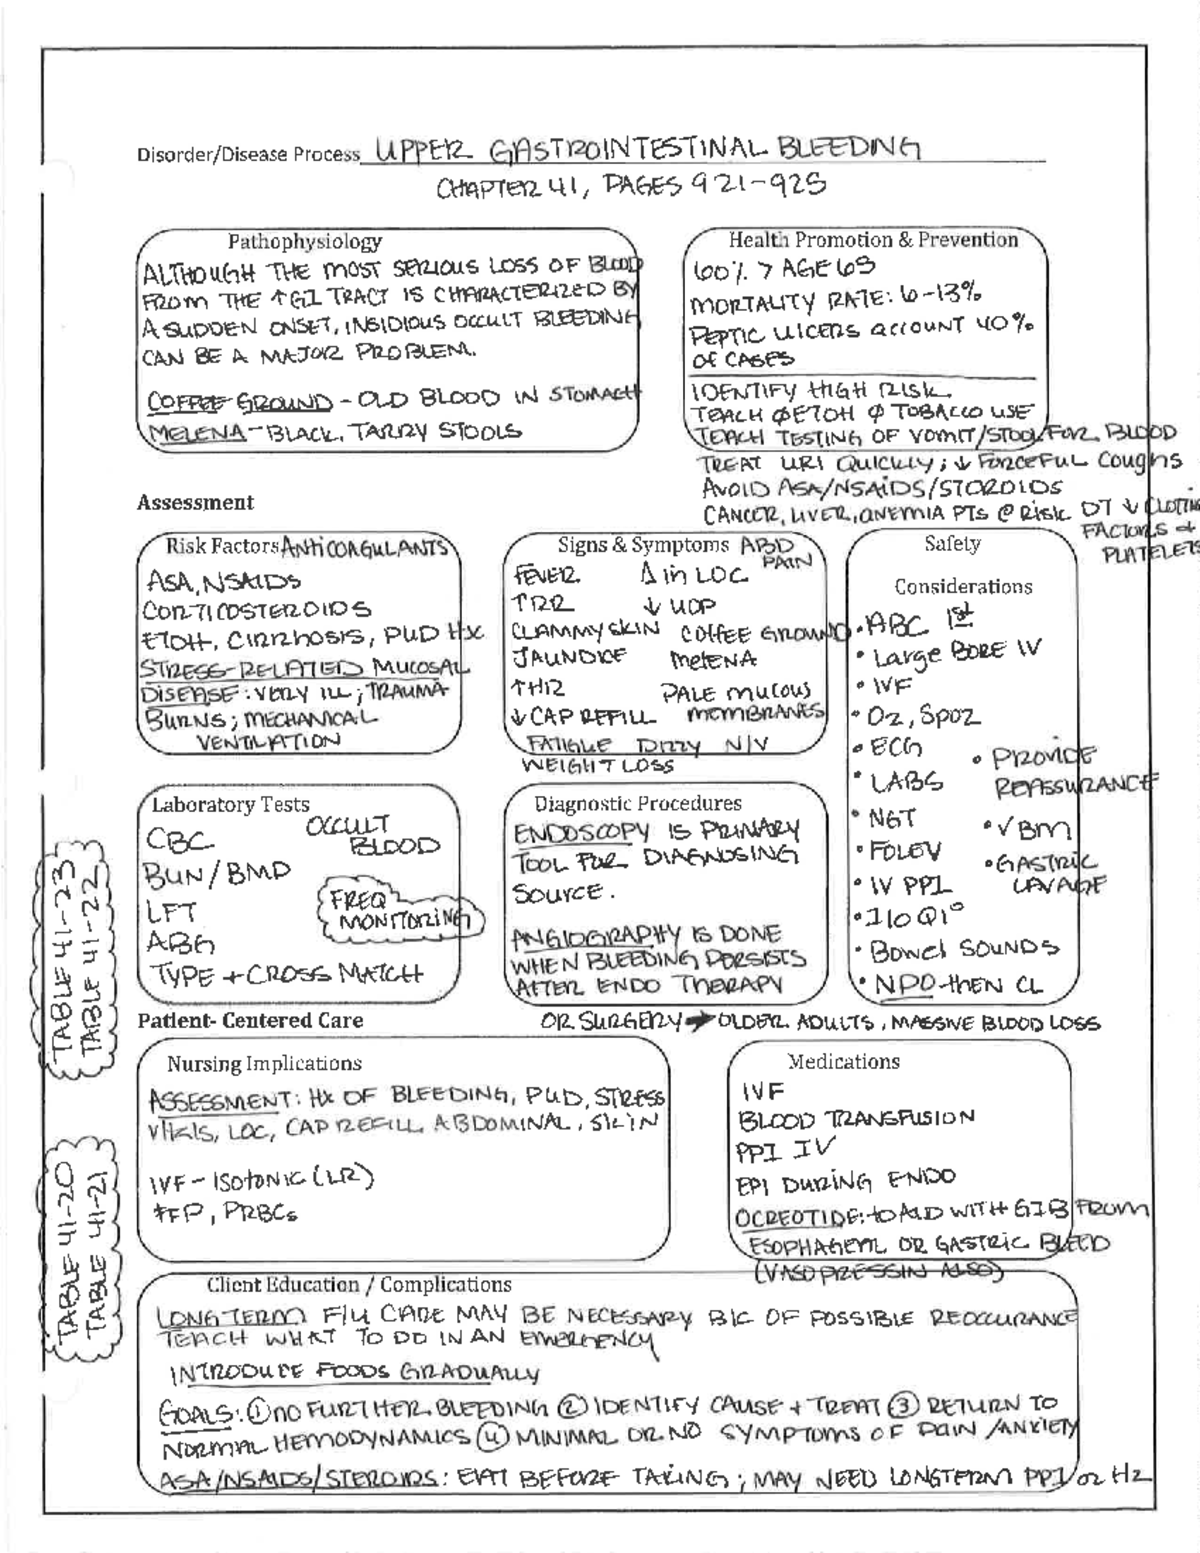 Disorder/Disease Process UPPER GASTROINTESTINAL BLEEDING
CHAPTER 41, PAGES 921-925
Pathophysiology
ALTHOUGH THE MOST SERIOUS LOSS OF BLOOD
FROM THE ↑GI TRACT IS CHARACTERIZED BY
A SUDDEN ONSET, INSIDIOUS OCCULT BLEEDING
CAN BE A MAJOR PROBLEM.
COFFEE GROUND - OLD BLOOD IN STOMACH
MELENA - BLACK, TARRY STOOLS
Health Promotion & Prevention
60% > AGE 65
MORTALITY RATE: 6-13%
PEPTIC ULCERS ACCOUNT 40%
OF CASES
IDENTIFY HIGH RISK
TEACH ØETOH Ø TOBACCO USE
TEACH TESTING OF VOMIT/STOOL FOR BLOOD
TREAT URI QUICKLY; ↓ FORCEFUL COUGHS
AVOID ASA/NSAIDS/STOROIDS
CANCER, LIVER, ANEMIA PTS @ RISK DT ↓ CLOTTING
FACTORS +
PLATELETS
Assessment
Risk Factors ANTICOAGULANTS
ASA, NSAIDS
CORTICOSTEROIDS
ETOH, CIRRHOSIS, PUD HX
STRESS-RELATED MUCOSAL
DISEASE: VERY ILL; TRAUMA
BURNS; MECHANICAL
VENTILATION
Signs & Symptoms ABD
PAIN
FEVER Δ in LOC
↑RR ↓ UOP
CLAMMY SKIN COFFEE GROUND
JAUNDICE MELENA
↑HR PALE MUCOUS
↓ CAP REFILL MEMBRANES
FATIGUE DIZZY N/V
WEIGHT LOSS
Safety
Considerations
• ABC 1st
• Large BORE IV
• IVF
• O2, SPO2
• ECG
• PROVIDE
REASSURANCE
• LABS
• NGT
• √BM
• FOLEY
• GASTRIC
LAVAGE
• IV PPI
• I/O Q1°
• Bowel SOUNDS
• NPO-then CL
Laboratory Tests
CBC
OCCULT
BLOOD
BUN/BMD
LFT
FREQ
MONITORING
ABG
TYPE + CROSS MATCH
TABLE 41-23
TABLE 41-22
Diagnostic Procedures
ENDOSCOPY IS PRIMARY
TOOL FOR DIAGNOSING
SOURCE.
ANGIOGRAPHY IS DONE
WHEN BLEEDING PERSISTS
AFTER ENDO THERAPY
OR SURGERY → OLDER ADULTS, MASSIVE BLOOD LOSS
Patient- Centered Care
Nursing Implications
ASSESSMENT: HX OF BLEEDING, PUD, STRESS
VITALS, LOC, CAP REFILL, ABDOMINAL, SKIN
IVF - ISOTONIC (LR)
FFP, PRBCs
TABLE 41-20
TABLE 41-21
Medications
IVF
BLOOD TRANSFUSION
PPI IV
EPI DURING ENDO
OCREOTIDE: to AID WITH GIB FROM
ESOPHAGEAL OR GASTRIC BLEED
(VASOPRESSIN ALSO)
Client Education / Complications
LONG-TERM F/U CARE MAY BE NECESSARY B/C OF POSSIBLE REOCCURANCE
TEACH WHAT TO DO IN AN EMERGENCY
INTRODUCE FOODS GRADUALLY
GOALS: ① NO FURTHER BLEEDING ② IDENTIFY CAUSE + TREAT ③ RETURN TO
NORMAL HEMODYNAMICS ④ MINIMAL OR NO SYMPTOMS OF PAIN /ANXIETY
ASA/NSAIDS/STEROIDS: EAT BEFORE TAKING; MAY NEED LONGTERM PPI or H2